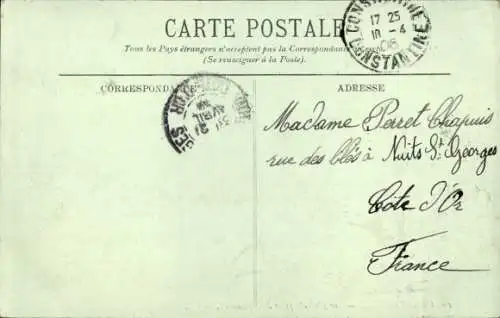 CARTE POSTALE
Tous les Pays étrangers n'acceptent pas la Correspondance
(Se renseigner à la Poste).
CONSTANTINE
17 25
10 - 4
06
CONSTANTINE
CORRESPONDANCE
AVRIL
ADRESSE
Madame Perret Chapuis
rue des Clés à Nuits St. Georges
Côte d'Or
France